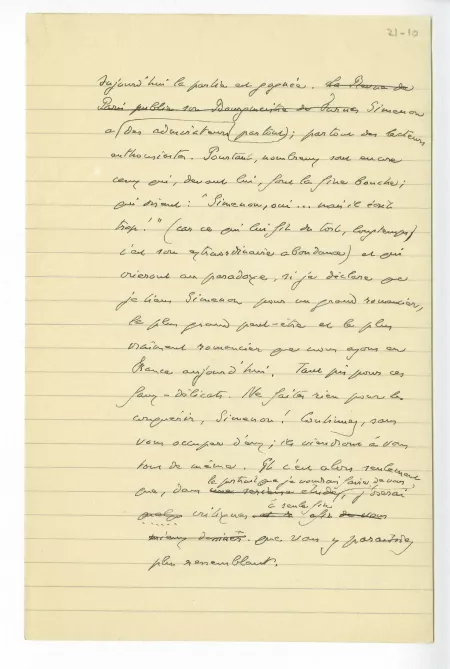 21-10
aujourd'hui la partie est gagnée. La Revue de
Paris publie son Bourgmestre de Furnes Simenon
a (des admirateurs partout); partout des lecteurs
enthousiastes. Pourtant, nombreux sont encore
ceux qui, devant lui, font la fine bouche;
qui disent: "Simenon, oui... mais il écrit
trop!" (car ce qui lui fit du tort, longtemps,
c'est son extraordinaire abondance) et qui
crieront au paradoxe, si je déclare que
je tiens Simenon pour un grand romancier,
le plus grand peut-être et le plus
vraiment romancier que nous ayons en
France aujourd'hui. Tant pis pour ces
faux-délicats. Ne faites rien pour les
conquérir, Simenon! Continuez, sans
vous occuper d'eux; ils viendront à vous
tout de même. Et c'est alors seulement
le portrait que je voudrais faire de vous
que, dans une étude, j'oserai
à seule fin
critiques afin de vous
mieux que vous y paraissiez
plus ressemblant.